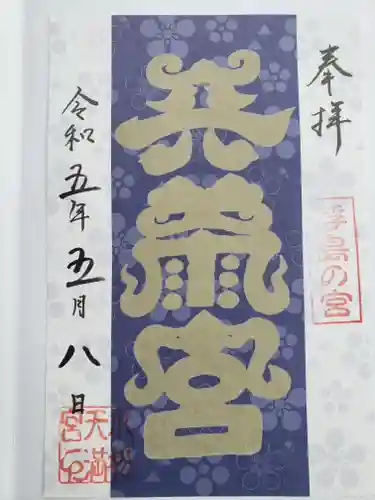 奉拝
浮島の宮
天満宮
小松
天満
宮印
令和五年五月八日